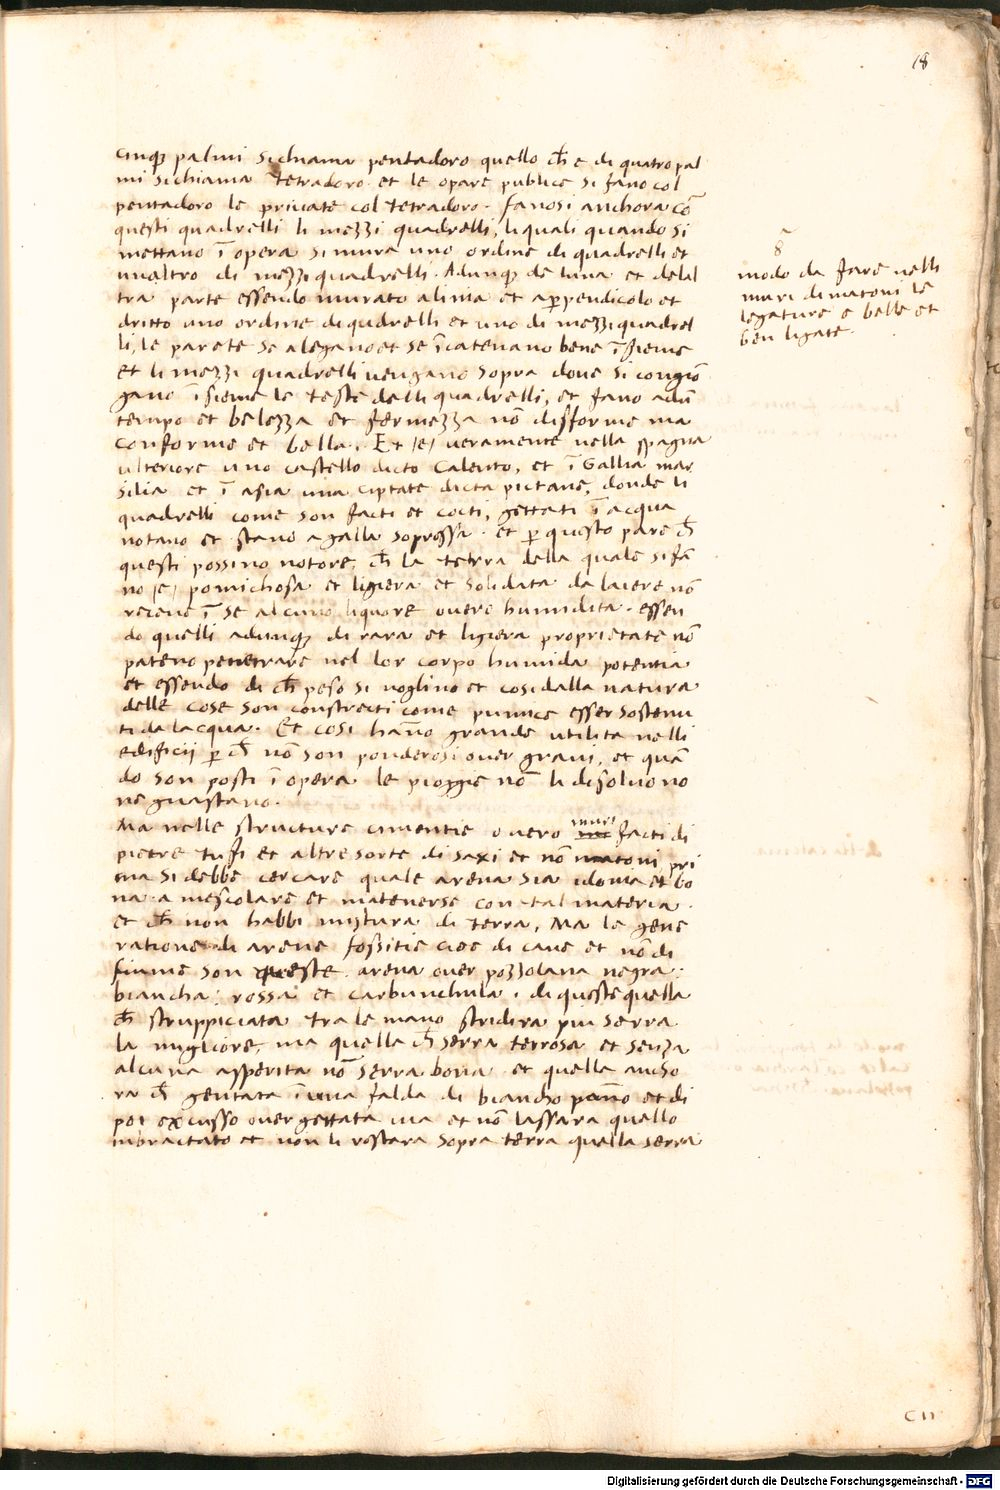 18
cinqȝ palmi si chiama pentadoro quello ch̄ e di quatro pal
mi si chiama Tetradoro. et le opare publice si fano col
pentadoro le private col tetradoro. fanosi anchora cō
questi quadrelli li mezzi quadrelli, li quali quando si
mettano ī opera si mura uno ordine di quadrelli et
unaltro di mezzi quadrelli. Adunqȝ de luna et delal
tra parte essendo murato alinia et aperpendicolo et
dritto uno ordine di qudrelli et uno di mezzi quadrel
li, le parete se alegano et se īcatenano bene īsieme
et li mezzi quadrelli vengano sopra dove si congiō
gano īsieme le teste delli quadrelli, et fano adū
tempo et belezza et fermezza nō disforme ma
conforme et bella. Et /e/ veramente nella spagna
ulteriore uno castello dicto Calento, et ī Gallia mar
silia et ī asia una ciptate dicta pictane, donde li
quadrelli come son facti et cocti, gettati ī acqua
notano et stano agalla sopressa. et ꝑ questo pare ch̄
questi possino notore, ch̄ la tetrra della quale si fā
no /e/ pomichosa et ligiera et solidata da laiere nō
receve ī se alcuno liquore overo humidita. essen
do quelli adunqȝ di rara et ligiera proprietate nō
pateno penetrare nel lor corpo humida potentia
et essendo di ch̄ peso si voglino et cosi dalla natura
delle cose son constrecti come pumice esser sostenu
ti da lacqua. Et cosi hano grande utilita nelli
edificii ꝑ ch̄ nō son ponderosi over gravi, et quā
do son posti ī opera le piogge nō li disolvono
ne guastano.
Ma nelle structure cimentie overo muri facti di
pietre tufi et altre sorte di saxi et nō matoni pri
ma si debbe cercare quale arena sia idonia et bo
na a mescolare et matenerse con tal materia.
et ch̄ non habbi mistura di terra, Ma le gene
ratione di arene fossitie cioe di cave et nō di
fiume son queste. arena over pozzolana negra.
biancha: rossa et carbunchula. di queste quella
ch̄ struppiciata tra le mano stridira piu serra
la migliore, ma quella ch̄ serra terrosa et senza
alcuna asperita nō serra bona et quella ancho
ra ch̄ gentata ī una falda di biancho panno et di
poi excusso over gettata via et nō lassara quello
inbractato et non li restara sopra terra quella serra
8
modo da fare nelli
muri di matoni le
legature e belle et
ben ligate.
C II
Digitalisierung gefördert durch die Deutsche Forschungsgemeinschaft - DFG